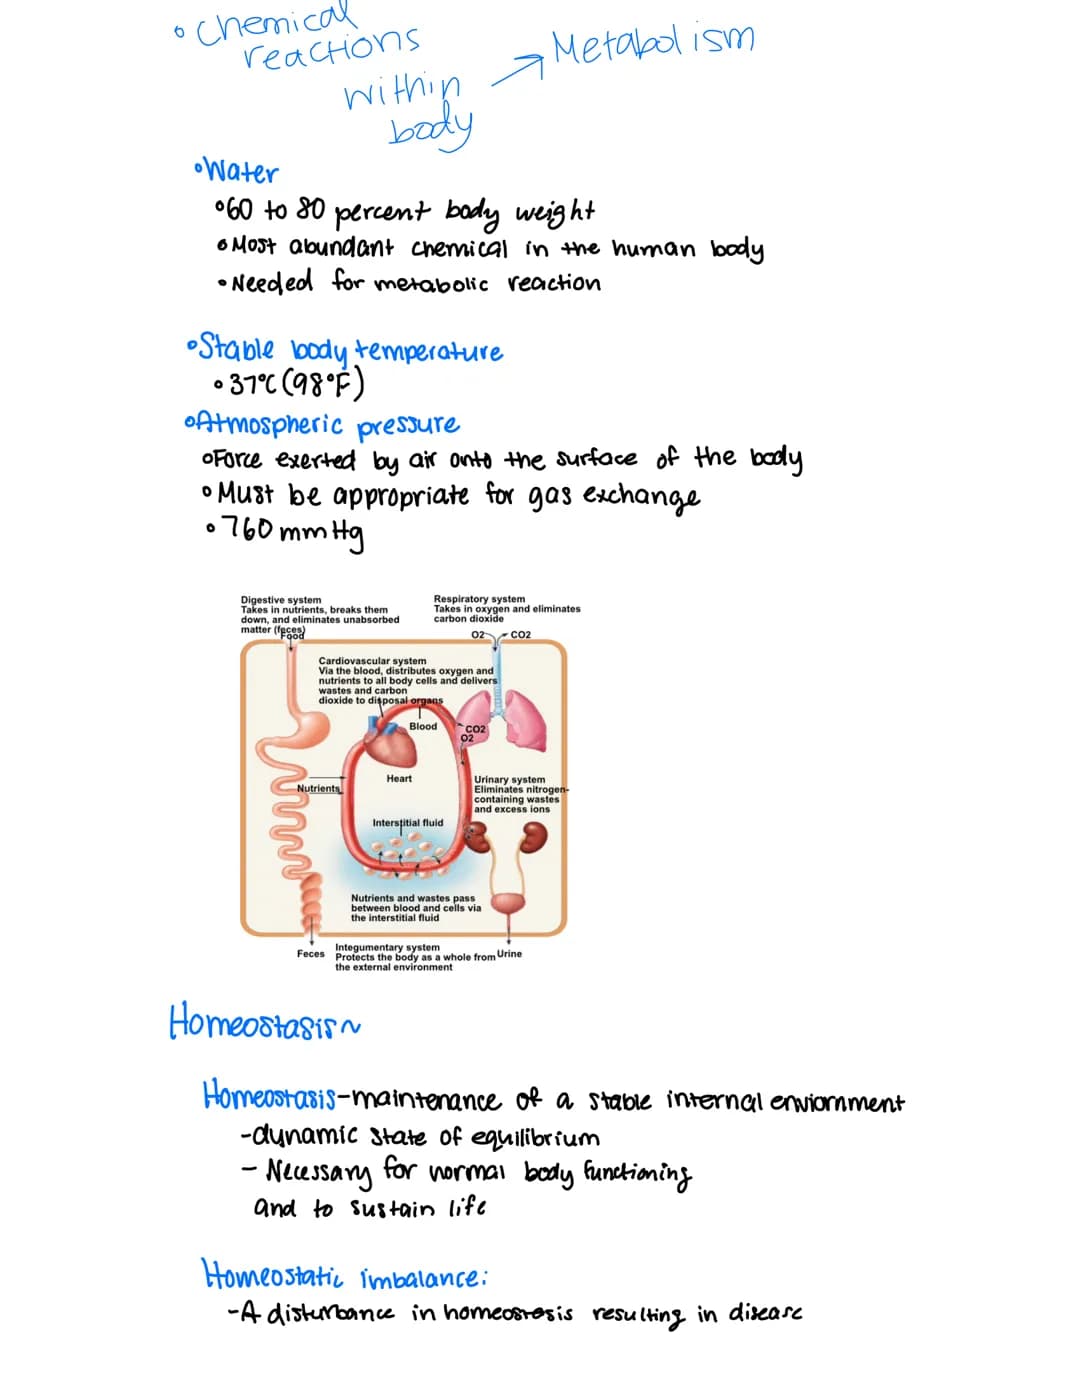 • Chemical
reactions
within
body
→ Metabolism
• Water
• 60 to 80 percent body weight
• Most abundant chemical in the human body
• Needed for metabolic reaction
• Stable body temperature
• 37°C (98°F)
• Atmospheric pressure
• Force exerted by air onto the surface of the body
• Must be appropriate for gas exchange
• 760 mmHg
Digestive system
Takes in nutrients, breaks them
down, and eliminates unabsorbed
matter (feces)
Food
Respiratory system
Takes in oxygen and eliminates
carbon dioxide
O2 CO2
Cardiovascular system
Via the blood, distributes oxygen and
nutrients to all body cells and delivers
wastes and carbon
dioxide to disposal organs
Blood
CO2
O2
Heart
Nutrients
Urinary system
Eliminates nitrogen-
containing wastes
and excess ions
Interstitial fluid
Nutrients and wastes pass
between blood and cells via
the interstitial fluid
Feces
Integumentary system
Protects the body as a whole from
the external environment
Urine
Homeostasis~
Homeostasis-maintenance of a stable internal enviornment
-dynamic state of equilibrium
- Necessary for normal body functioning
and to sustain life
Homeostatic imbalance:
-A disturbance in homeostasis resulting in disease